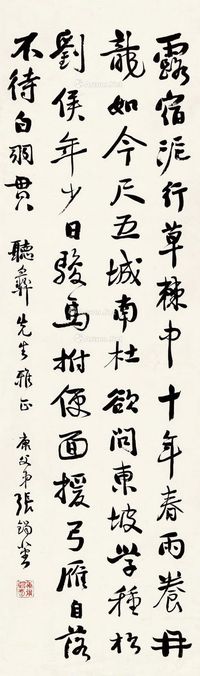 露宿泥行草棘中十年春雨養髯
龍如今尺五城南杜欲問東坡學種松
劉侯年少日駿馬拊便面援弓雁自落
不待白羽貫
聽彝先生雅正 庚父弟張錫銮